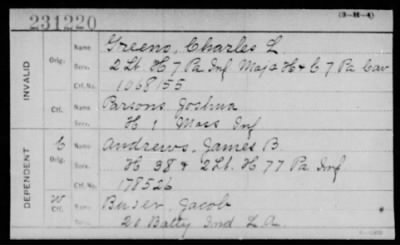 231220
(3-H-4)
INVALID
Orig.
Name Greeno, Charles L.
Serv. 2 Lt. H 7 Pa Inf Maj & H & C 7 Pa Cav
Ctf. No. 1068155
Ctf.
Name Parsons, Joshua
Serv. H 1 Mass Inf
DEPENDENT
C
Orig.
Name Andrews, James B.
Serv. H 38 & 2 Lt. H 77 Pa Inf
Ctf. No. 178526
W
Ctf.
Name Jacob
Serv. 20 Batty Ind L. A.